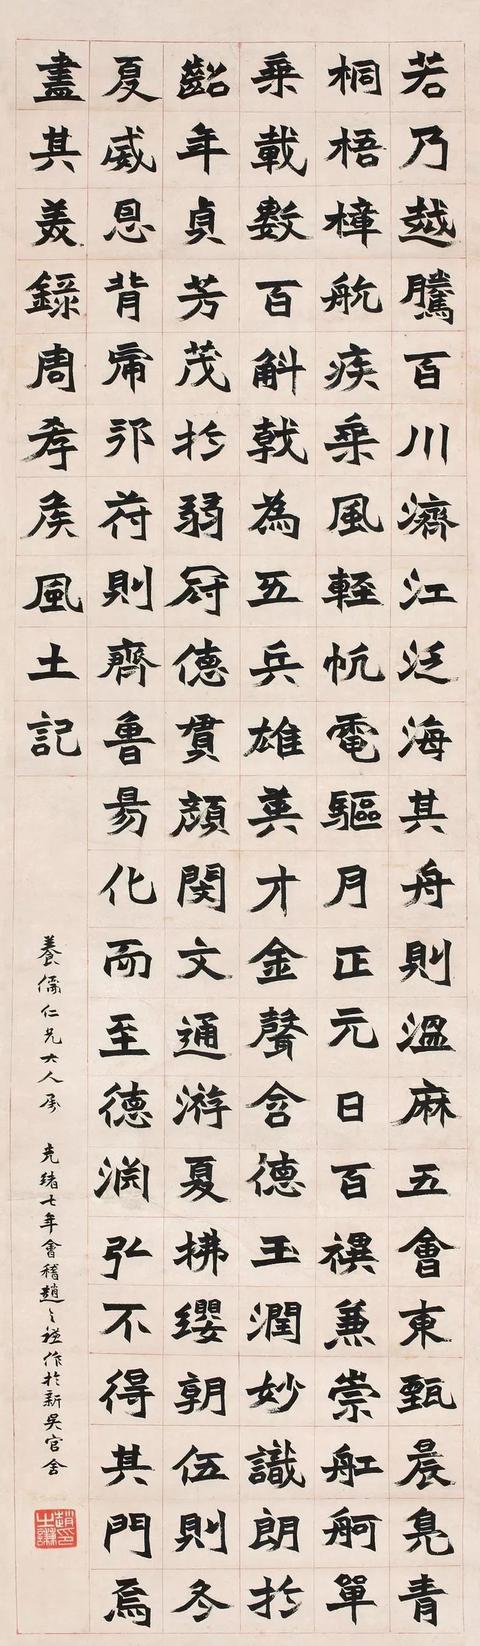 若乃越騰百川濟江泛海其舟則溫麻五會東甄晨鳧青
桐梧樟航疾乘風輕帆電驅月正元日百禩兼崇舡舸單
乘載數百斛戟為五兵雄英才金聲含德玉潤妙識朗於
齠年貞芳茂於弱冠德貫顏閔文通游夏拂纓朝伍則冬
夏威恩背帝邛苻則齊魯易化而至德淵弘不得其門焉
盡其美錄周孝侯風土記
養儒仁兄大人屬 光緒七年會稽趙之謙作於新吳官舍
趙之謙印